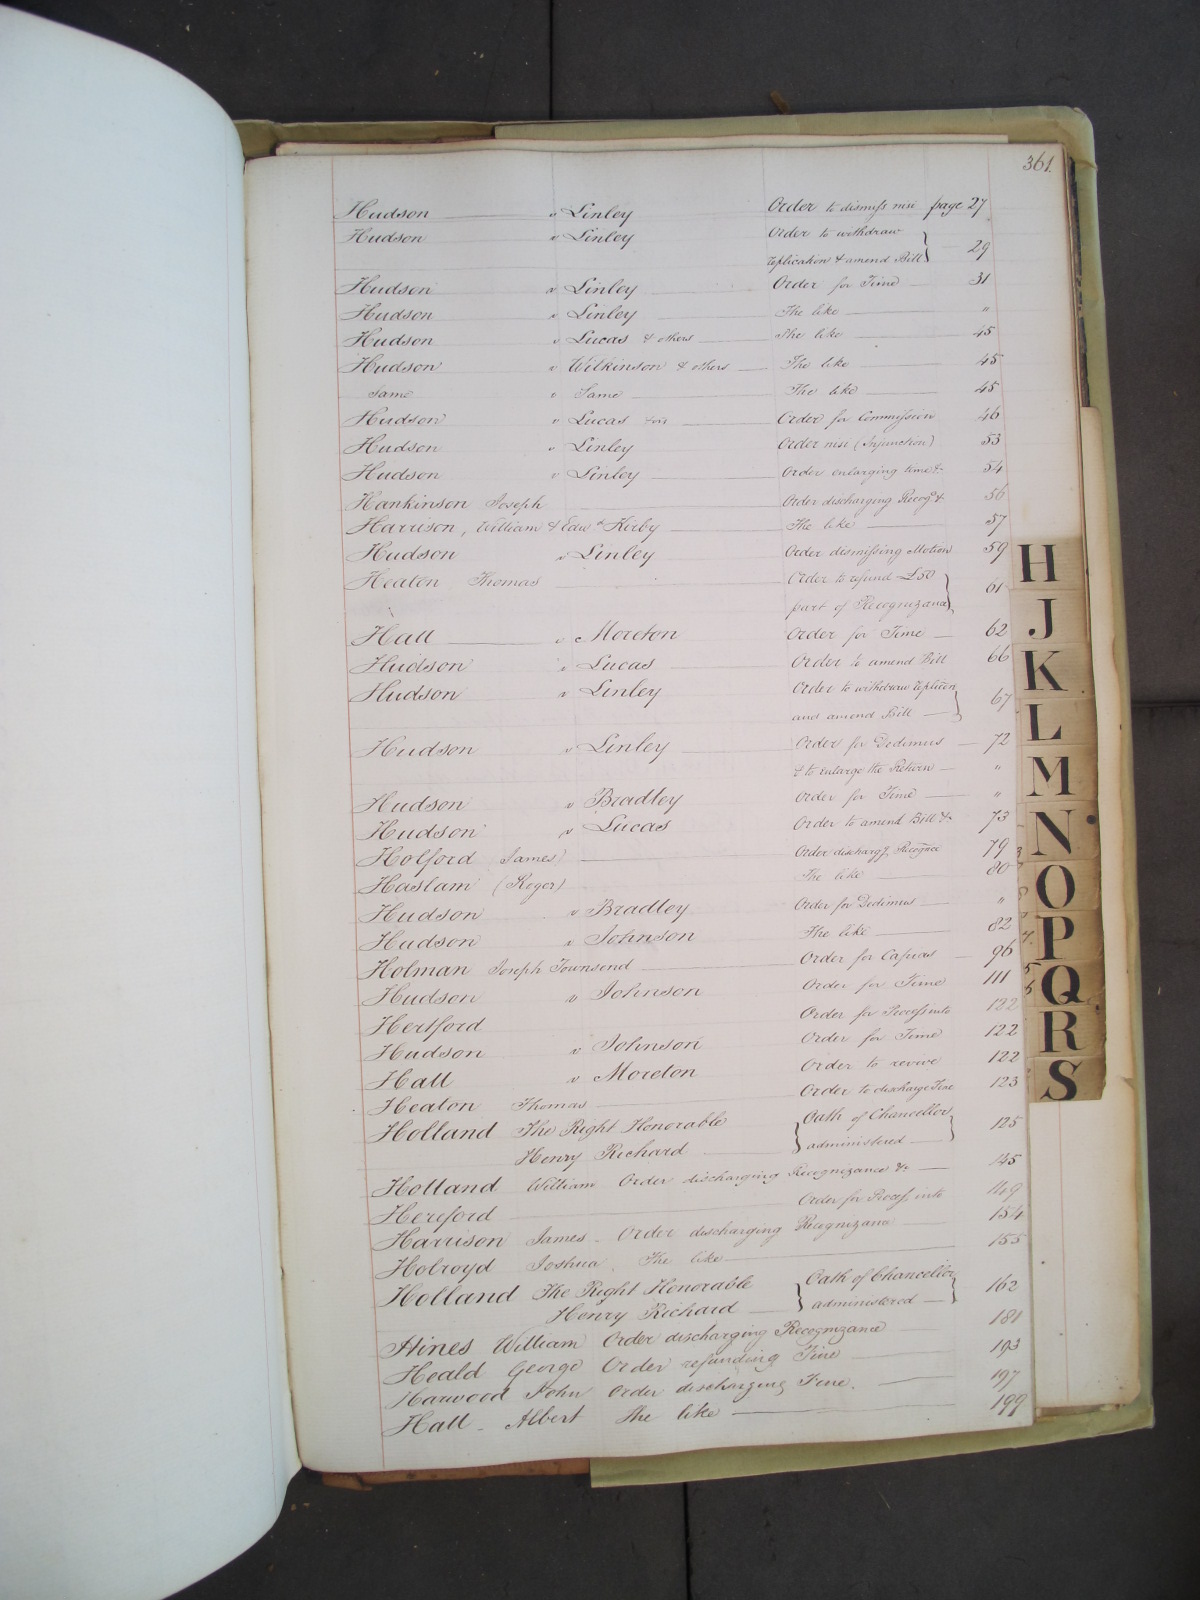 361.
Hudson v Linley Order to dismiss nisi page 27
Hudson v Linley Order to withdraw
replication & amend Bill } 29
Hudson v Linley Order for Time 31
Hudson v Linley The like "
Hudson v Lucas & others The like 45
Hudson v Wilkinson & others The like 45
Same v Same The like 45
Hudson v Lucas Order for Commission 46
Hudson v Linley Order nisi (Injunction) 53
Hudson v Linley Order enlarging time &c 54
Hankinson Joseph Order discharging Recogce &c 56
Harrison, William & Edwd Kirby The like 57
Hudson v Linley Order dismissing Motion 59
Heaton Thomas Order to refund £50
part of Recognizance } 61
Hall v Moreton Order for Time 62
Hudson v Lucas Order to amend Bill 66
Hudson v Linley Order to withdraw replicon
and amend Bill } 67
Hudson v Linley Order for Dedimus 72
& to enlarge the Return "
Hudson v Bradley Order for Time "
Hudson v Lucas Order to amend Bill &c 73
Holford (James) Order dischargg Recognce 79
Haslam (Roger) The like 80
Hudson v Bradley Order for Dedimus "
Hudson v Johnson The like 82
Holman Joseph Townsend Order for Capias 96
Hudson v Johnson Order for Time 111
Hertford Order for Process into 122
Hudson v Johnson Order for Time 122
Hall v Moreton Order to revive 122
Heaton Thomas Order to discharge Fine 123
Holland The Right Honorable
Henry Richard } Oath of Chancellor
administered } 125
Holland William Order discharging Recognizance &c 145
Hereford Order for Process into 149
Harrison James - Order discharging Recognizance 154
Holroyd Joshua, The like 155
Holland The Right Honorable
Henry Richard } Oath of Chancellor
administered } 162
Hines William Order discharging Recognizance 181
Heald George Order refunding Fine 193
Harwood John Order discharging Fine. 197
Hall - Albert The like 199
H
J
K
L
M
N
O
P
Q
R
S